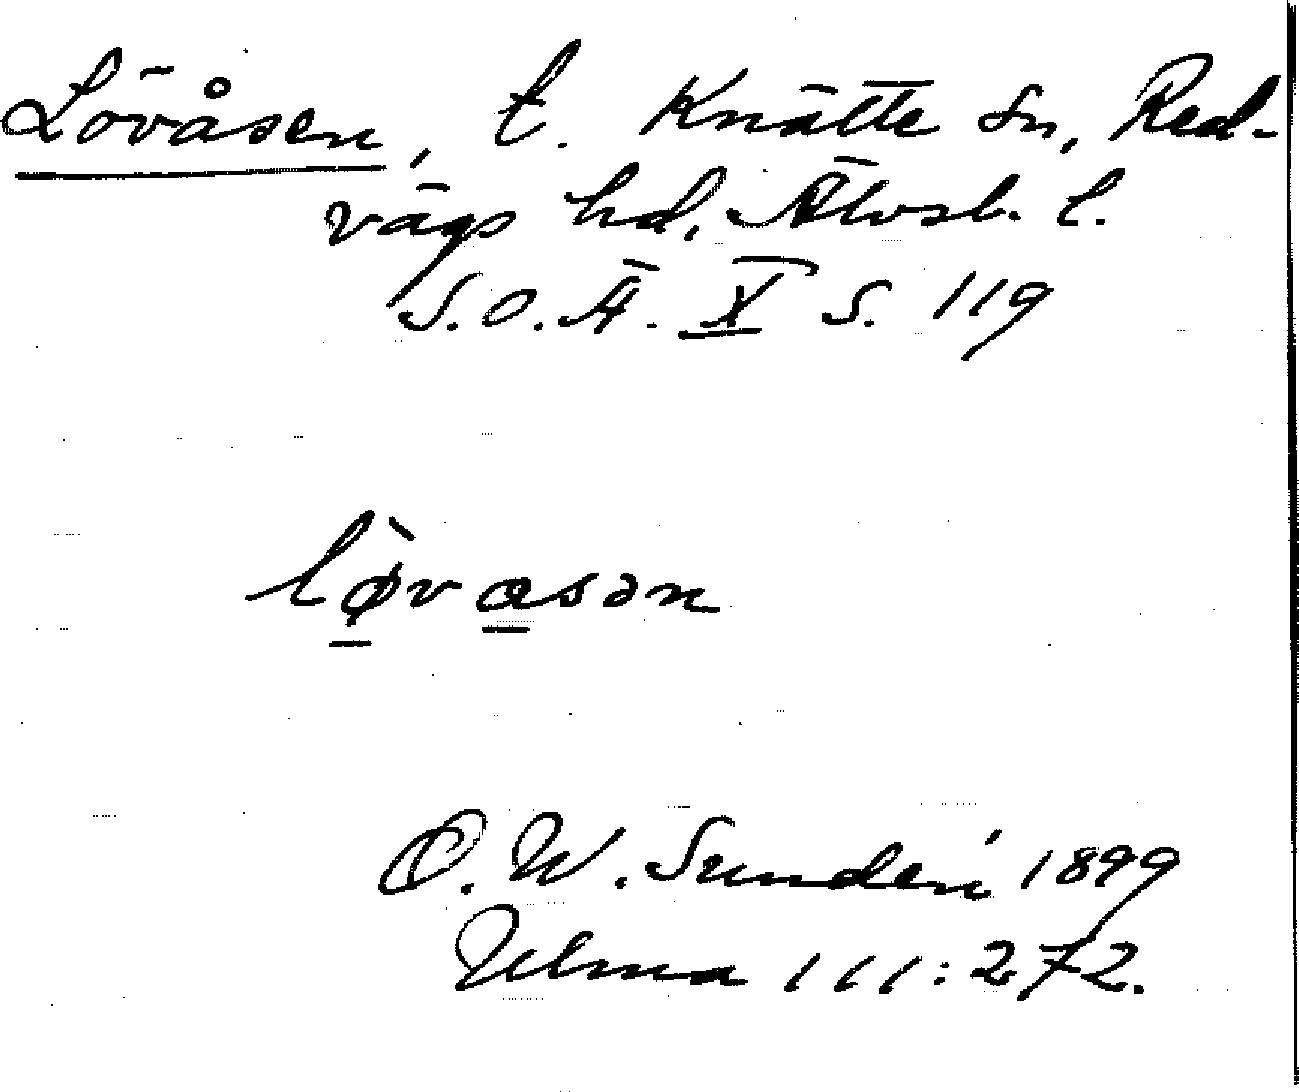 Lövåsen, t. Knätte sn, Red-
vägs hd, Älvsb. l.
S.O.Ä. X S. 119
lø̀vasən
O. W. Sundén 1899
Ulma 111:272.